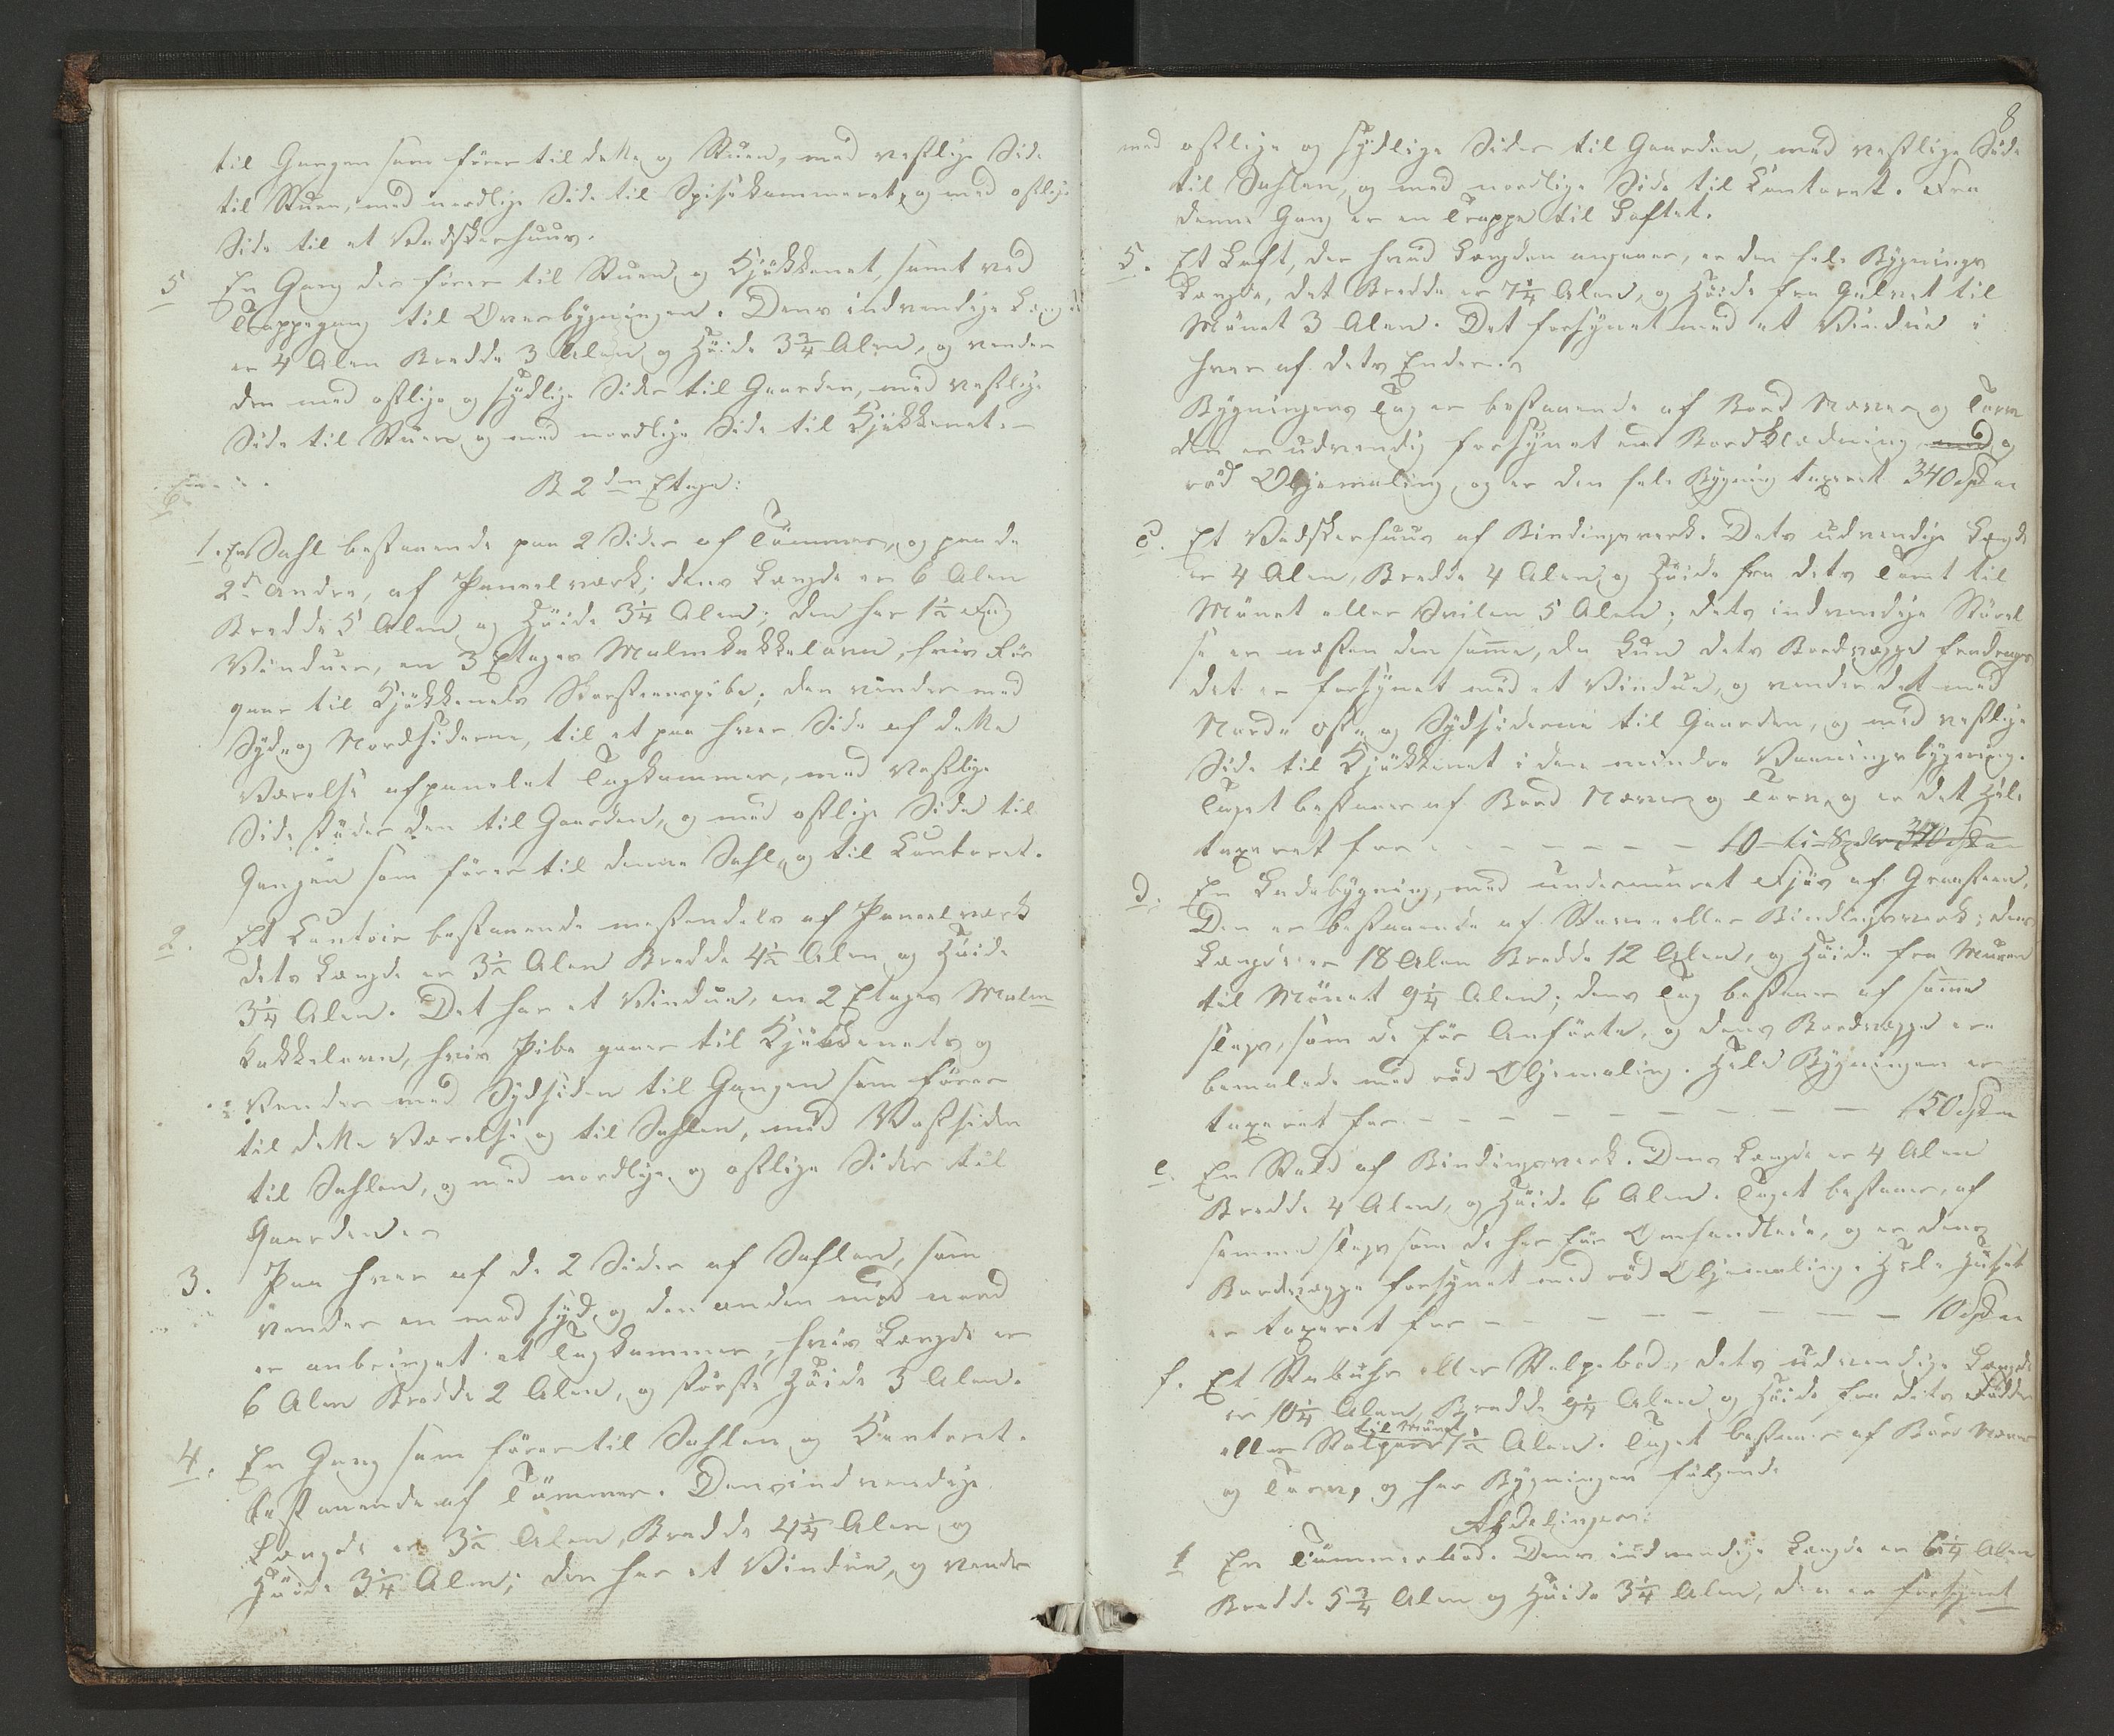 til Gangen som fører til dette og Stuen, med vestlige Side
til Stuen, med nordlige Side til Spisekammeret, og med østlige
Side til et Vadskerhuus.
5 En Gang der fører til Stuen og Kjøkkenet, samt ved
Trappegang til Overbygningen. Dens indvendige Længde
er 4 Alen Bredde 3 Alen og Høide 3 3/4 Alen, og vender
den med østlige og sydlige Sider til Gaarden, med vestlige
Side til Stuen og med nordlige Side til Kjøkkenet.
B 2den Etage:
1. En Sahl bestaaende paa 2 Sider af Tømmer, og paa de
2de Andre, af Paneelværk; dens Længde er 6 Alen
Bredde 5 Alen og Høide 3 1/4 Alen; den har 1 1/2 Fag
Vinduer, en 3 Etages Malmkakkelovn, hvis Rør
gaar til Kjøkkenets Skorsteenspibe; den vender med
Syd og Nordsiderne, til et paa hver Side af dette
Værelse afpanelet Tagkammer, med Vestlige
Side støder den til Gaarden, og med østlige Side til
Gangen som fører til denne Sahl, og til Contoret.
2. Et Contoir bestaaende mestendels af Paneelværk
dets Længde er 3 1/2 Alen Bredde 4 1/2 Alen og Høide
3 1/4 Alen. Det har et Vindue, en 2 Etages Malm
Kakkelovn, hvis Pibe gaaer til Kjøkkenets og
Vender med Sydsiden til Gangen som fører
til dette Værelse og til Sahlen, med Vestsiden
til Sahlen, og med nordlige og østlige Sider til
Gaarden.
3. Paa hver af de 2 Sider af Sahlen, som
vender en mod syd og den anden mod nord
er anbringet et Tagkammer, hvis Længde er
6 Alen Bredde 2 Alen, og største Høide 3 Alen.
4. En Gang som fører til Sahlen og Contoret.
bestaaende af Tømmer. Dens indvendige
Længde er 3 1/2 Alen, Bredde 4 1/4 Alen og
Høide 3 1/4 Alen; den har et Vindue, og vender
8
med østlige og sydlige Sider til Gaarden, med vestlige Side
til Sahlen, og med nordlige Side til Contoret. Fra
denne Gang er en Trappe til Loftet.
5. Et Loft, der hvad Længden angaaer, er den hele Bygnings
Længde, det Bredde er 7 1/4 Alen, og Høide fra Gulvet til
Mønet 3 Alen. Det forsynet med et Vindue i
hver af dets Ender.
Bygningens Tag er bestaaende af Bord Næver og Torv
den er udvendig forsynet med Bordklædning med og
rød Oljemaling, og er den hele Bygning taxeret 340 Spd
c. Et Vadskerhuus af Bindingsverk. Dets udvendige Længde
er 4 Alen, Bredde 4 Alen og Høide fra dets Tomt til
Mønet eller Svilen 5 Alen; dets indvendige Størel
se er næsten den samme, da kun dets Bordvægge fradrages
det er forsynet med et Vindue, og vender det med
Nord- Øst- og Sydsiderne til Gaarden, og med vestlige
Side til Kjøkkenet i den mindre Vaaningsbygning.
Taget bestaaer af Bord Næver og Torv, og er det Hele
taxeret for - - - - - - 10 ti Spdlr 340 Spd
d. En Ladebygning, med undermuret Fjøs af Graasteen,
Den er bestaaende af Stave eller Bindingsverk; dens
Længde er 18 Alen Bredde 12 Alen, og Høide fra Muren
til Mønet 9 1/4 Alen; dens Tag bestaaer af samme
slags, som de før Anførte, og dens Bordvægge ere
bemalede med rød Oljemaling. Hele Bygningen er
taxeret for - - - - - - - - 150 Spd
e. En Stald af Bindingsverk. Dens Længde er 4 Alen
Bredde 4 Alen, og Høide 6 Alen. Taget bestaaer, af
samme slags som de her før Omhandlede, og er dens
Bordvægge forsynet med rød Oljemaling. Hele Huset
er taxeret for - - - - - - - 10 Spd
f. Et Stabuhr eller Stolpebod, dets udvendige Længde
er 10 1/4 Alen, Bredde 9 1/4 Alen og Høide fra dets Fødder
til Mønet
eller Stolper 7 1/2 Alen. Taget bestaaer af Bord Næver
og Torv, og har Bygningen følgende
Afdelinger:
1 En Tømmerbod. Dens indvendige Længde er 6 1/4 Alen
Bredde 5 3/4 Alen og Høide 3 1/4 Alen, den er forsynet